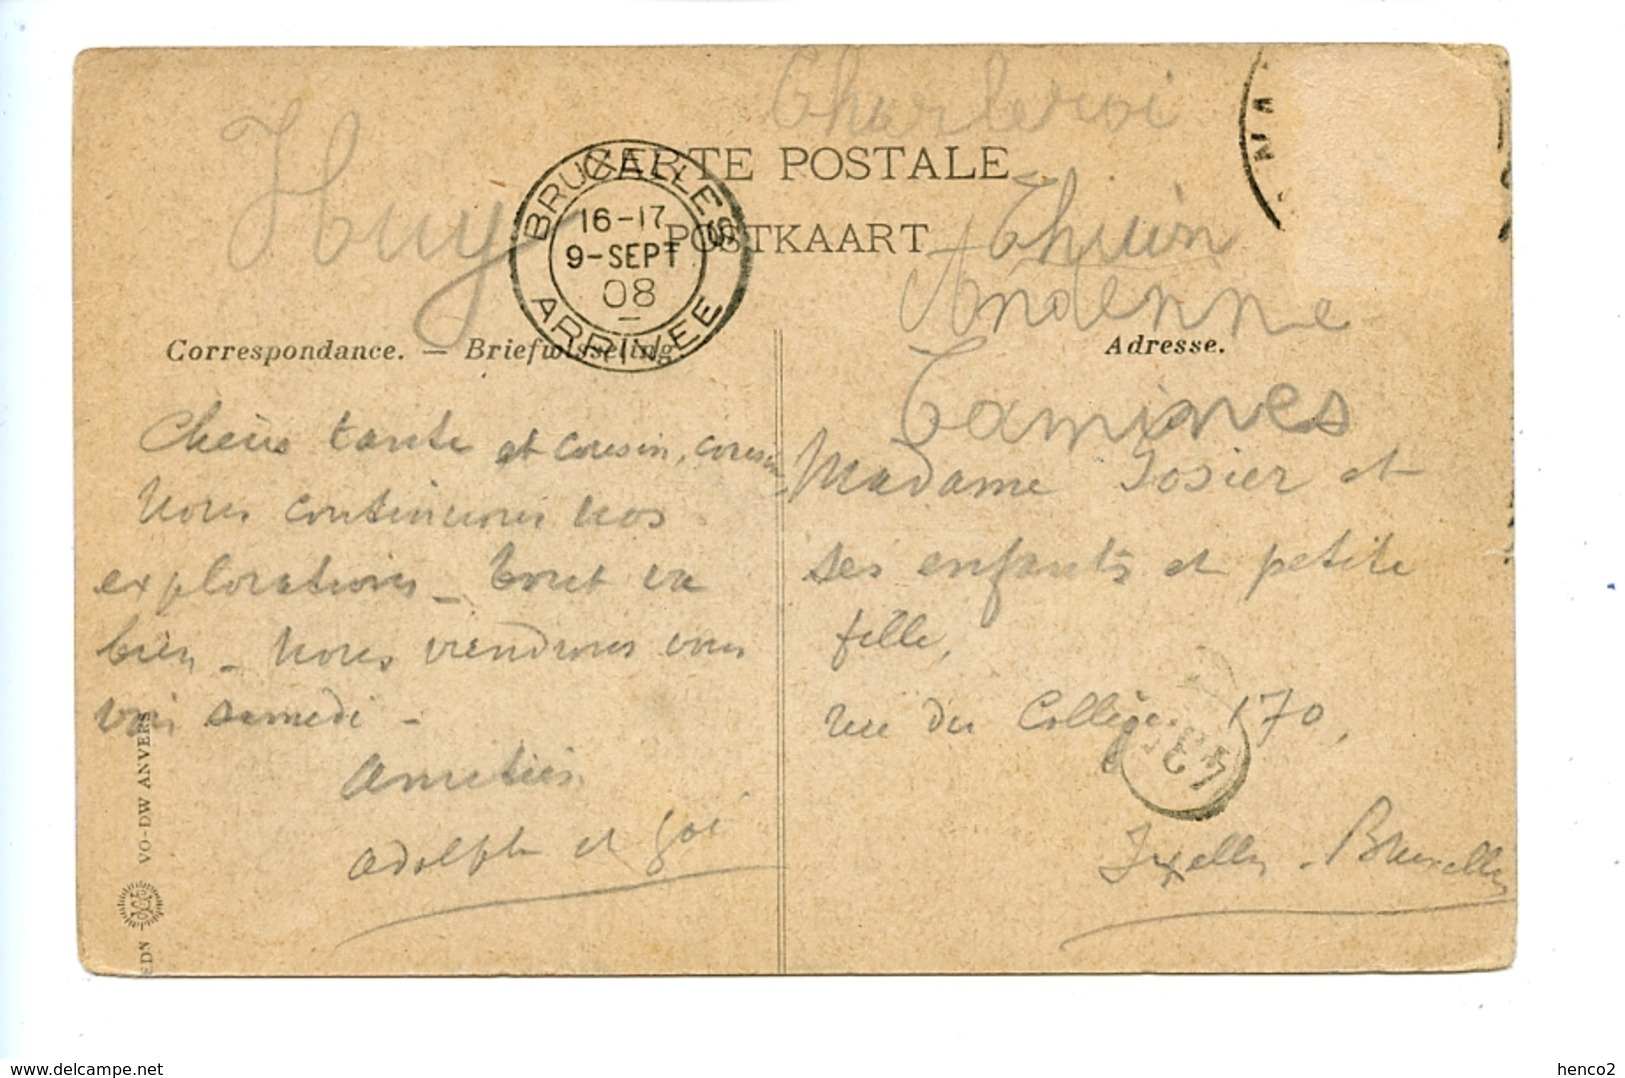 Charleroi
Huy
CARTE POSTALE
POSTKAART
BRUXELLES
16-17
9-SEPT
08
ARRIVEE
Thuin
Andenne
Tamines
Correspondance. — Briefwisseling
Adresse.
Chère tante et cousin, cousine
Nous continuons nos
explorations – Tout va
bien – Nous viendrons vous
voir samedi –
Amitiés
Adolphe et
Madame Josier et
ses enfants et petite
fille,
rue du Collège 170,
Ixelles - Bruxelles
EDN VO-DW ANVERS
delcampe.net
henco2